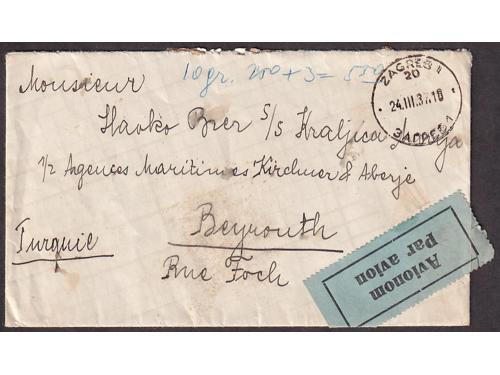 10 gr. 250 + 3 = 550
ZAGREB 1
20
24.III.37.18
ЗАГРЕБ 1
Monsieur
Slavko Bier S/S Kraljica
1/2 Agences Maritimes Kirchner & Aberje
Beyrouth
Turquie
Rue Foch
Avionom
Par avion